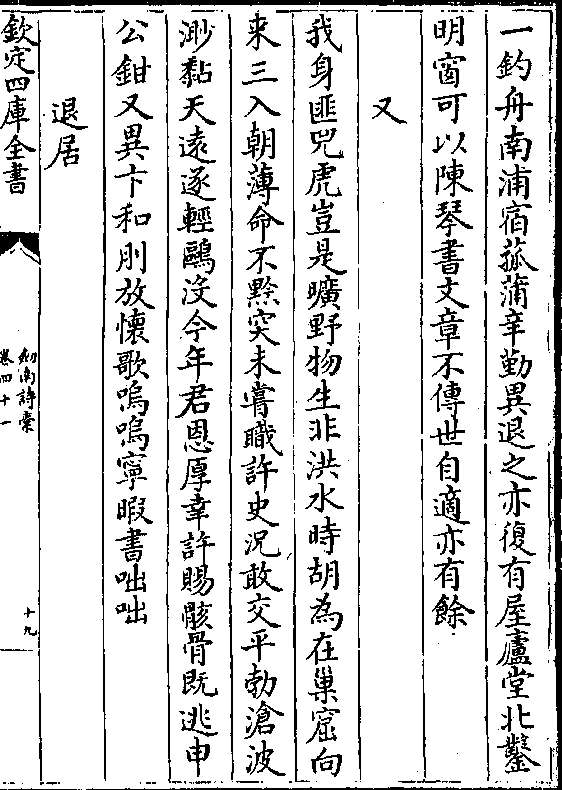 一釣舟南浦宿菰蒲辛勤異退之亦復有屋廬堂北鑿
明窗可以陳琴書文章不傳世自適亦有餘
又
我身匪兕虎豈是曠野物生非洪水時胡為在巢窟向
来三入朝薄命不黔突未嘗職許史況敢交平勃滄波
渺黏天遠逐輕鷗沒今年君恩厚幸許賜骸骨既逃申
公鉗又異卞和刖放懷歌嗚嗚寧暇書咄咄
退居
欽定四庫全書
劒南詩稾
卷四十一
十九